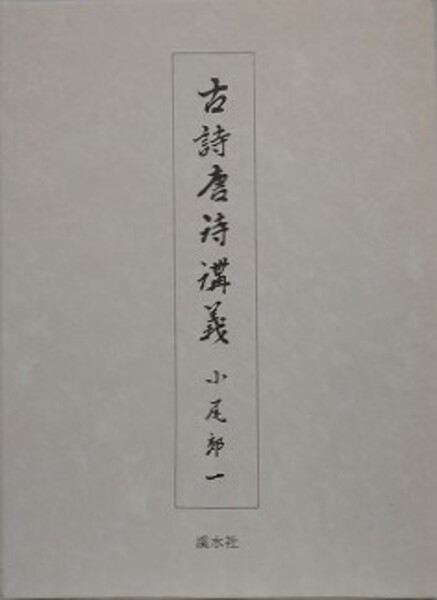 古詩唐詩講義 小尾郊一
溪水社